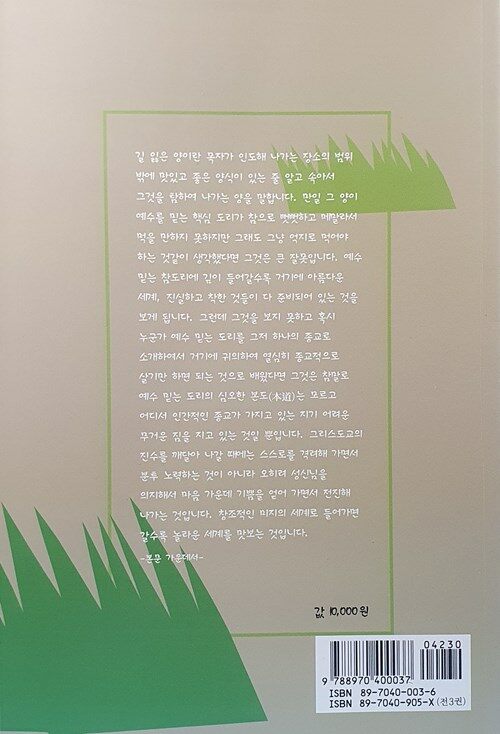 길 잃은 양이란 목자가 인도해 나가는 장소의 범위
밖에 맛있고 좋은 양식이 있는 줄 알고 속아서
그것을 탐하여 나가는 양을 말합니다. 만일 그 양이
예수를 믿는 핵심 도리가 참으로 뻣뻣하고 메말라서
먹을 만하지 못하지만 그래도 그냥 억지로 먹어야
하는 것같이 생각했다면 그것은 큰 잘못입니다. 예수
믿는 참도리에 깊이 들어갈수록 거기에 아름다운
세계, 진실하고 착한 것들이 다 준비되어 있는 것을
보게 됩니다. 그런데 그것을 보지 못하고 혹시
누군가 예수 믿는 도리를 그저 하나의 종교로
소개하여서 거기에 귀의하여 열심히 종교적으로
살기만 하면 되는 것으로 배웠다면 그것은 참말로
예수 믿는 도리의 심오한 본도(本道)는 모르고
어디서 인간적인 종교가 가지고 있는 지기 어려운
무거운 짐을 지고 있는 것일 뿐입니다. 그리스도교의
진수를 깨달아 나갈 때에는 스스로를 격려해 가면서
분투 노력하는 것이 아니라 오히려 성신님을
의지해서 마음 가운데 기쁨을 얻어 가면서 전진해
나가는 것입니다. 창조적인 미지의 세계로 들어가면
갈수록 놀라운 세계를 맛보는 것입니다.
-본문 가운데서-
값 10,000원
04230
9 788970 400037
ISBN 89-7040-003-6
ISBN 89-7040-905-X (전3권)